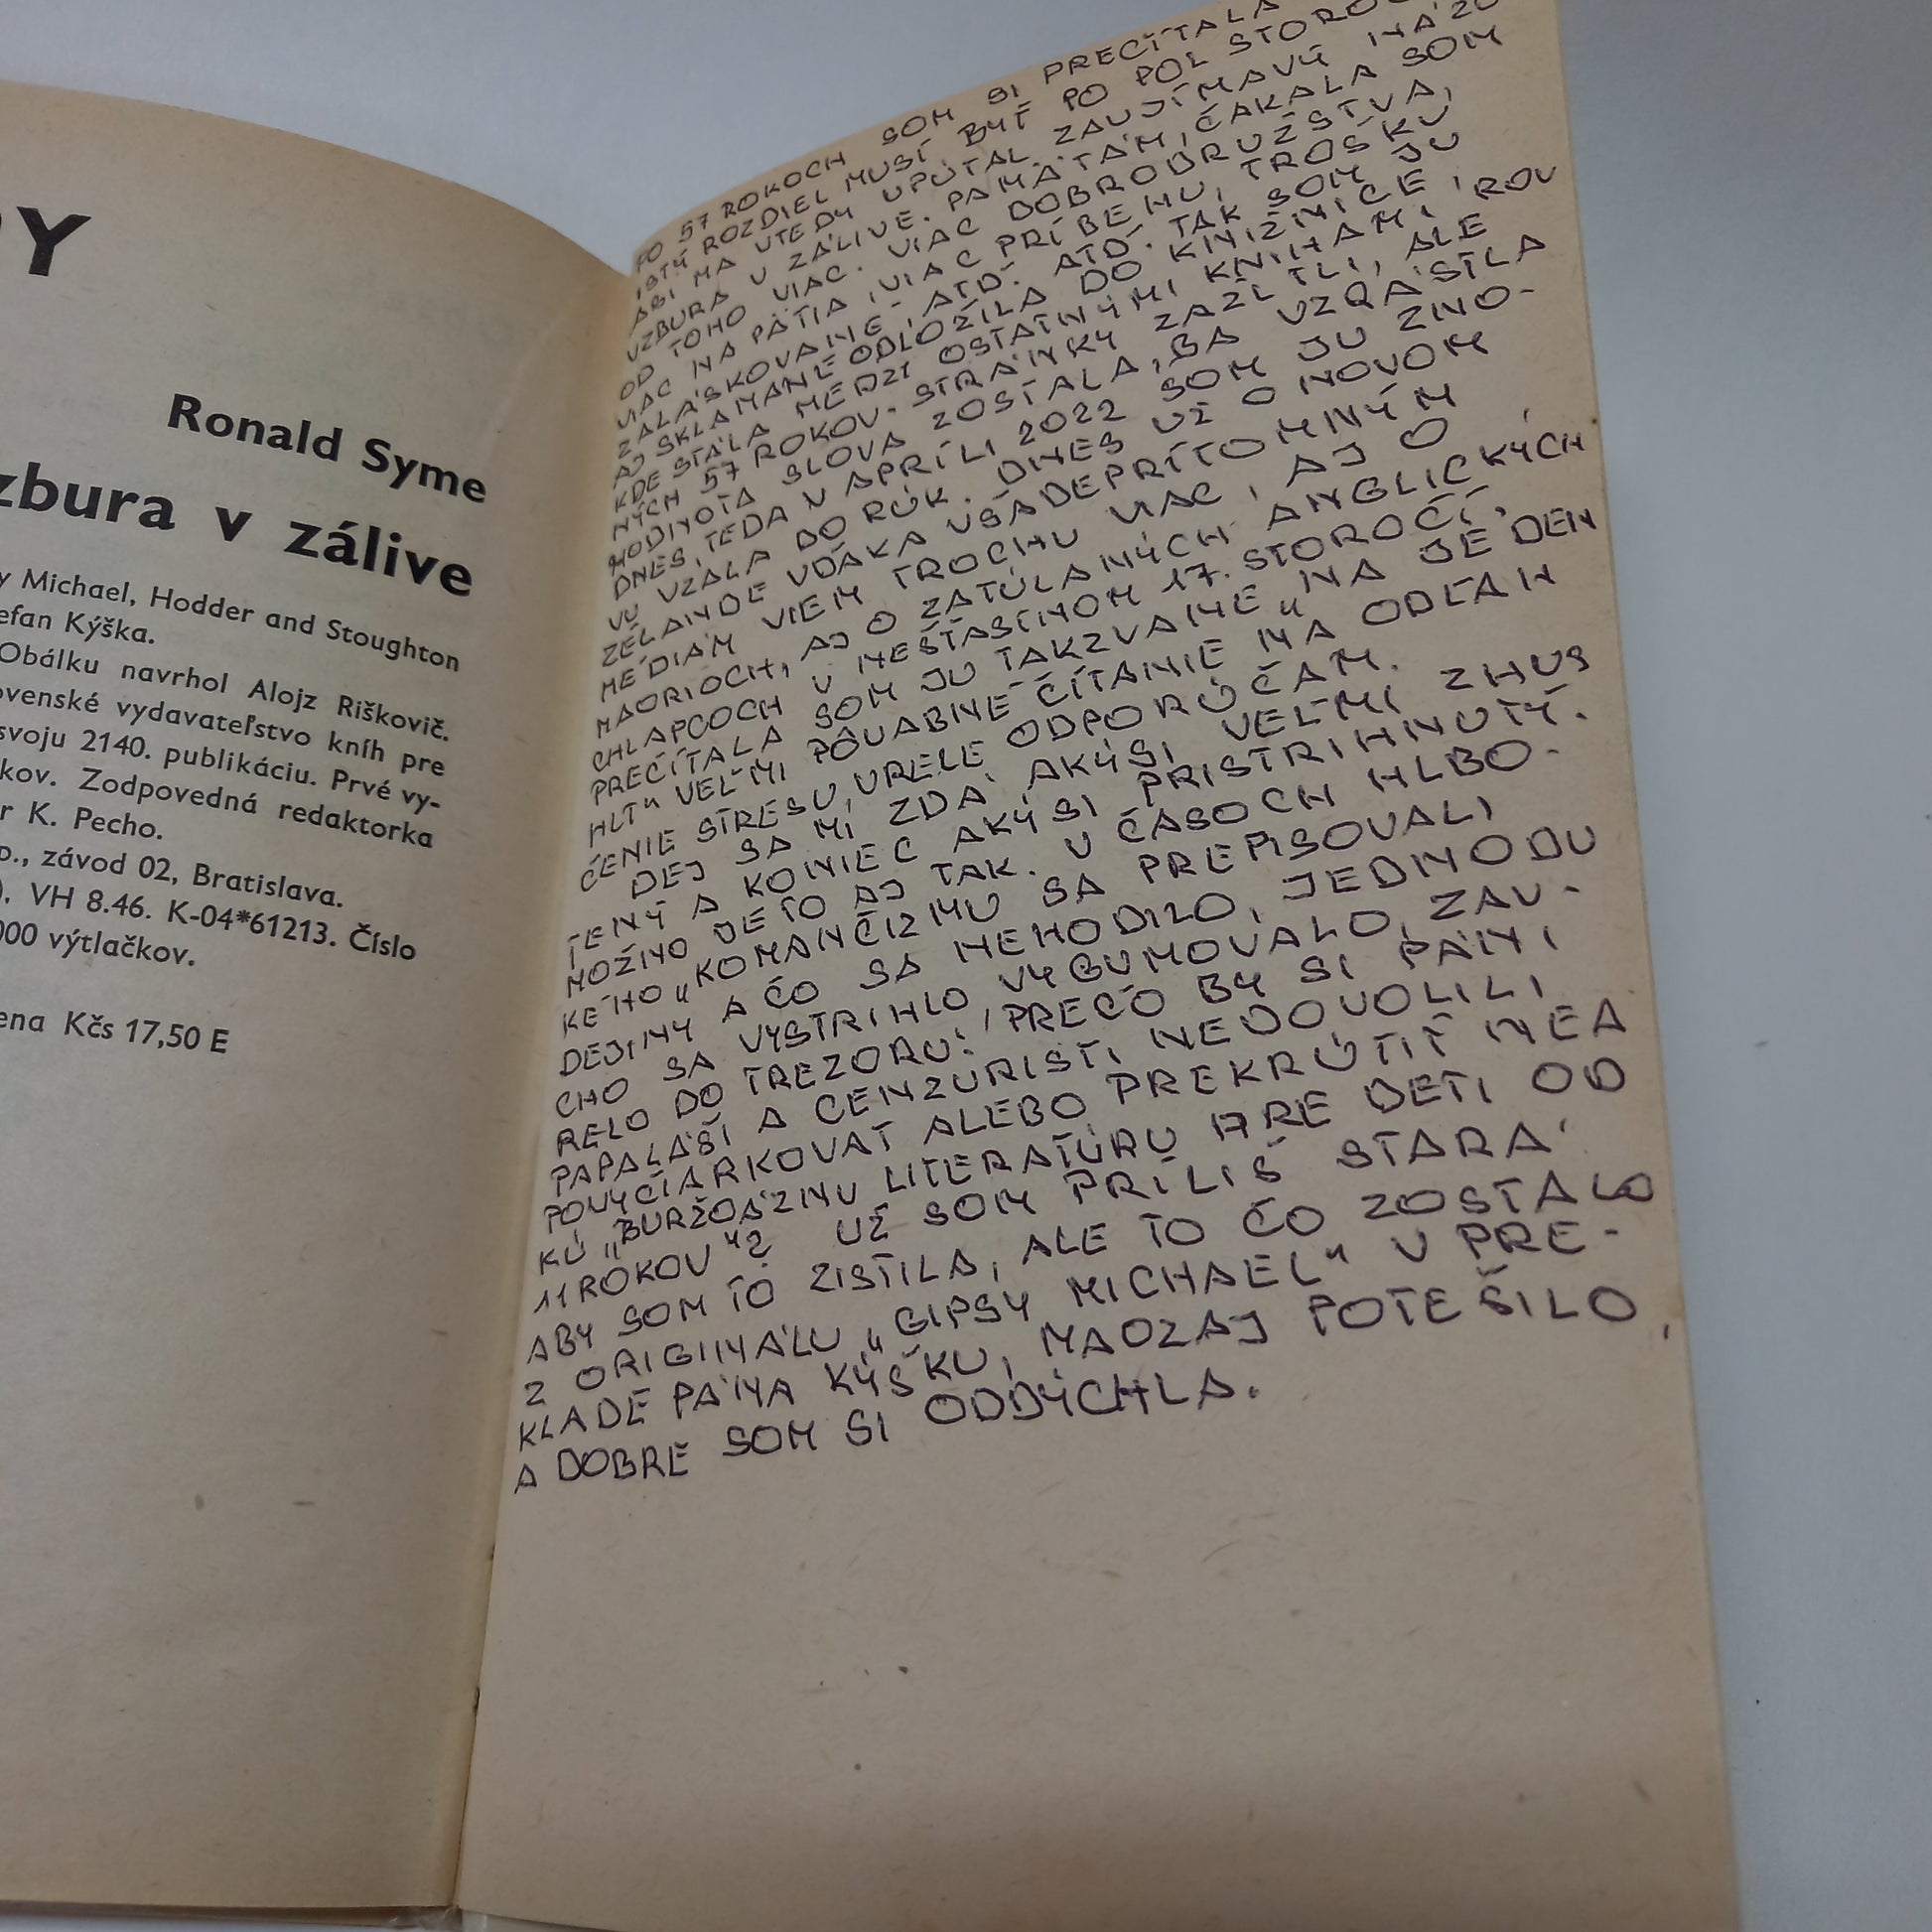 Ronald Syme
zbura v zálive
y Michael, Hodder and Stoughton
efan Kýška.
Obálku navrhol Alojz Riškovič.
ovenské vydavateľstvo kníh pre
svoju 2140. publikáciu. Prvé vy-
kov. Zodpovedná redaktorka
r K. Pecho.
o., závod 02, Bratislava.
). VH 8.46. K-04*61213. Číslo
000 výtlačkov.
ena Kčs 17,50 E
PO 57 ROKOCH SOM SI PREČÍTALA
ISTÝ ROZDIEL MUSÍ BYŤ PO POL
ASI MA VTEDY UPÚTAL ZAUJÍMAVÝ NÁZO
VZBURA V ZÁLIVE. PAMÄTÁM, ČAKALA SOM
OD TOHO VIAC. VIAC DOBRODRUŽSTVA,
VIAC NAPÄTIA, VIAC PRÍBEHU, TROŠKU
ZALÁSKOVANIE, ATĎ. ATĎ. TAK SOM JU
AJ SKLAMANE ODLOŽILA DO KNIŽNICE,
KDE STÁLA MEDZI OSTATNÝMI KNIHAMI ROV
NÝCH 57 ROKOV. STRÁNKY ZAŽLTLI, ALE
HODNOTA SLOVA ZOSTALA, BA VZRÁSTLA
DNES, TEDA V APRÍLI 2022 SOM JU ZNO-
VU VZALA DO RÚK. DNES UŽ O NOVOM
ZÉLANDE VĎAKA VŠADEPRÍTOMNÝM
MÉDIÁM VIEM TROCHU VIAC, AJ O
MAORIOCH, AJ O ZATÚLANÝCH ANGLICKÝCH
CHLAPCOCH V NEŠŤASTNOM 17. STOROČÍ.
PREČÍTALA SOM JU TAKZVANE „NA JEDEN
HLT" VEĽMI PÔVABNÉ ČÍTANIE NA ODĽAH
ČENIE STRESU, VRELE ODPORÚČAM.
DEJ SA MI ZDÁ AKÝSI VEĽMI ZHUS
TENÝ A KONIEC AKÝSI PRISTRIHNUTÝ.
MOŽNO JE TO AJ TAK. V ČASOCH HLBO-
KÉHO „KOMANČIZMU SA PREPISOVALI
DEJINY A ČO SA NEHODILO, JEDNODU
CHO SA VYSTRIHLO VYGUMOVALO, ZAV-
RELO DO TREZORU. PREČO BY SI PÁNI
PAPALÁŠI A CENZURISTI NEDOVOLILI
POVYČIARKOVAŤ ALEBO PREKRÚTIŤ NEA
KÚ „BURŽOÁZNU LITERATÚRU PRE DETI OD
11 ROKOV"? UŽ SOM PRÍLIŠ STARÁ
ABY SOM TO ZISTILA, ALE TO ČO ZOSTALO
Z ORIGINÁLU „GIPSY MICHAEL" V PRE-
KLADE PÁNA KÝŠKU, NAOZAJ POTEŠILO,
A DOBRE SOM SI ODDÝCHLA.